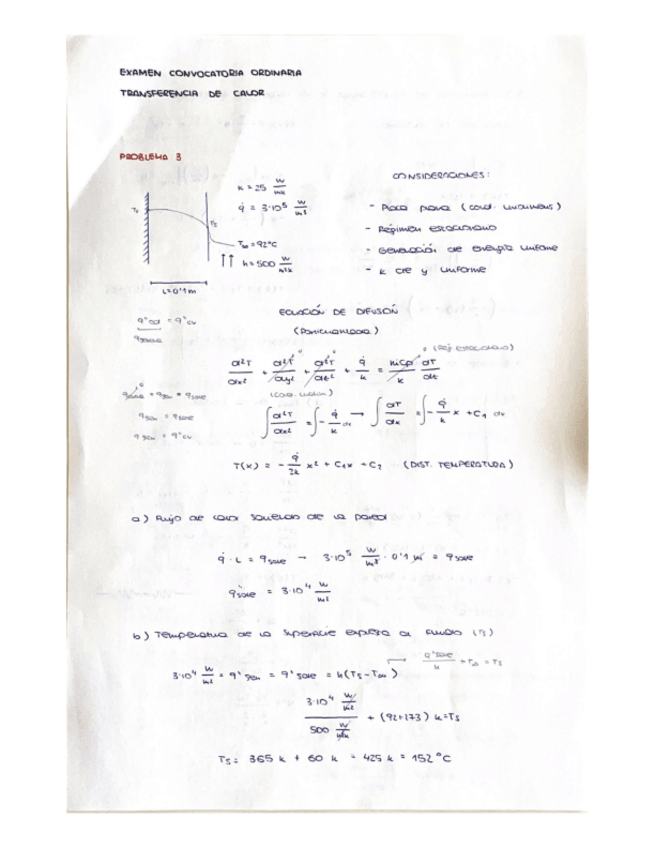 EXAMEN CONVOCATORIA ORDINARIA
TRANSFERENCIA DE CALOR
PROBLEMA 3
k = 25 W/mk
q̇ = 3·10⁵ W/m³
T∞ = 92°C
h = 500 W/m²k
L = 0'1 m
CONSIDERACIONES:
- Placa plana (cond. unidimens)
- Régimen estacionario
- Generación de energía uniforme
- k cte y uniforme
q"cd = q"cv
ECUACIÓN DE DIFUSIÓN
(Particularizada)
0 (Rég estacionario)
d²T/dx² + d²T/dy² + d²T/dz² + q̇/k = dT/dt
q gen = q sale
q gen = q"cv
∫ d²T/dx² = ∫ - q̇/k dx → ∫ dT/dx = ∫ - q̇/k x + C₁ dx
T(x) = - q̇/2k x² + C₁x + C₂ (DIST. TEMPERATURA)
a) Flujo de calor saliendo de la pared
q̇ · L = q sale → 3·10⁵ W/m³ · 0'1 m = q sale
q̇ sale = 3·10⁴ W/m²
b) Temperatura de la superficie expuesta al fluido (Ts)
3·10⁴ W/m² = q" gen = q" sale = h(Ts - T∞) → q" sale/h + T∞ = Ts
3·10⁴ W/m² / 500 W/m²k + (92+273) k = Ts
Ts = 365 k + 60 k = 425 k = 152°C